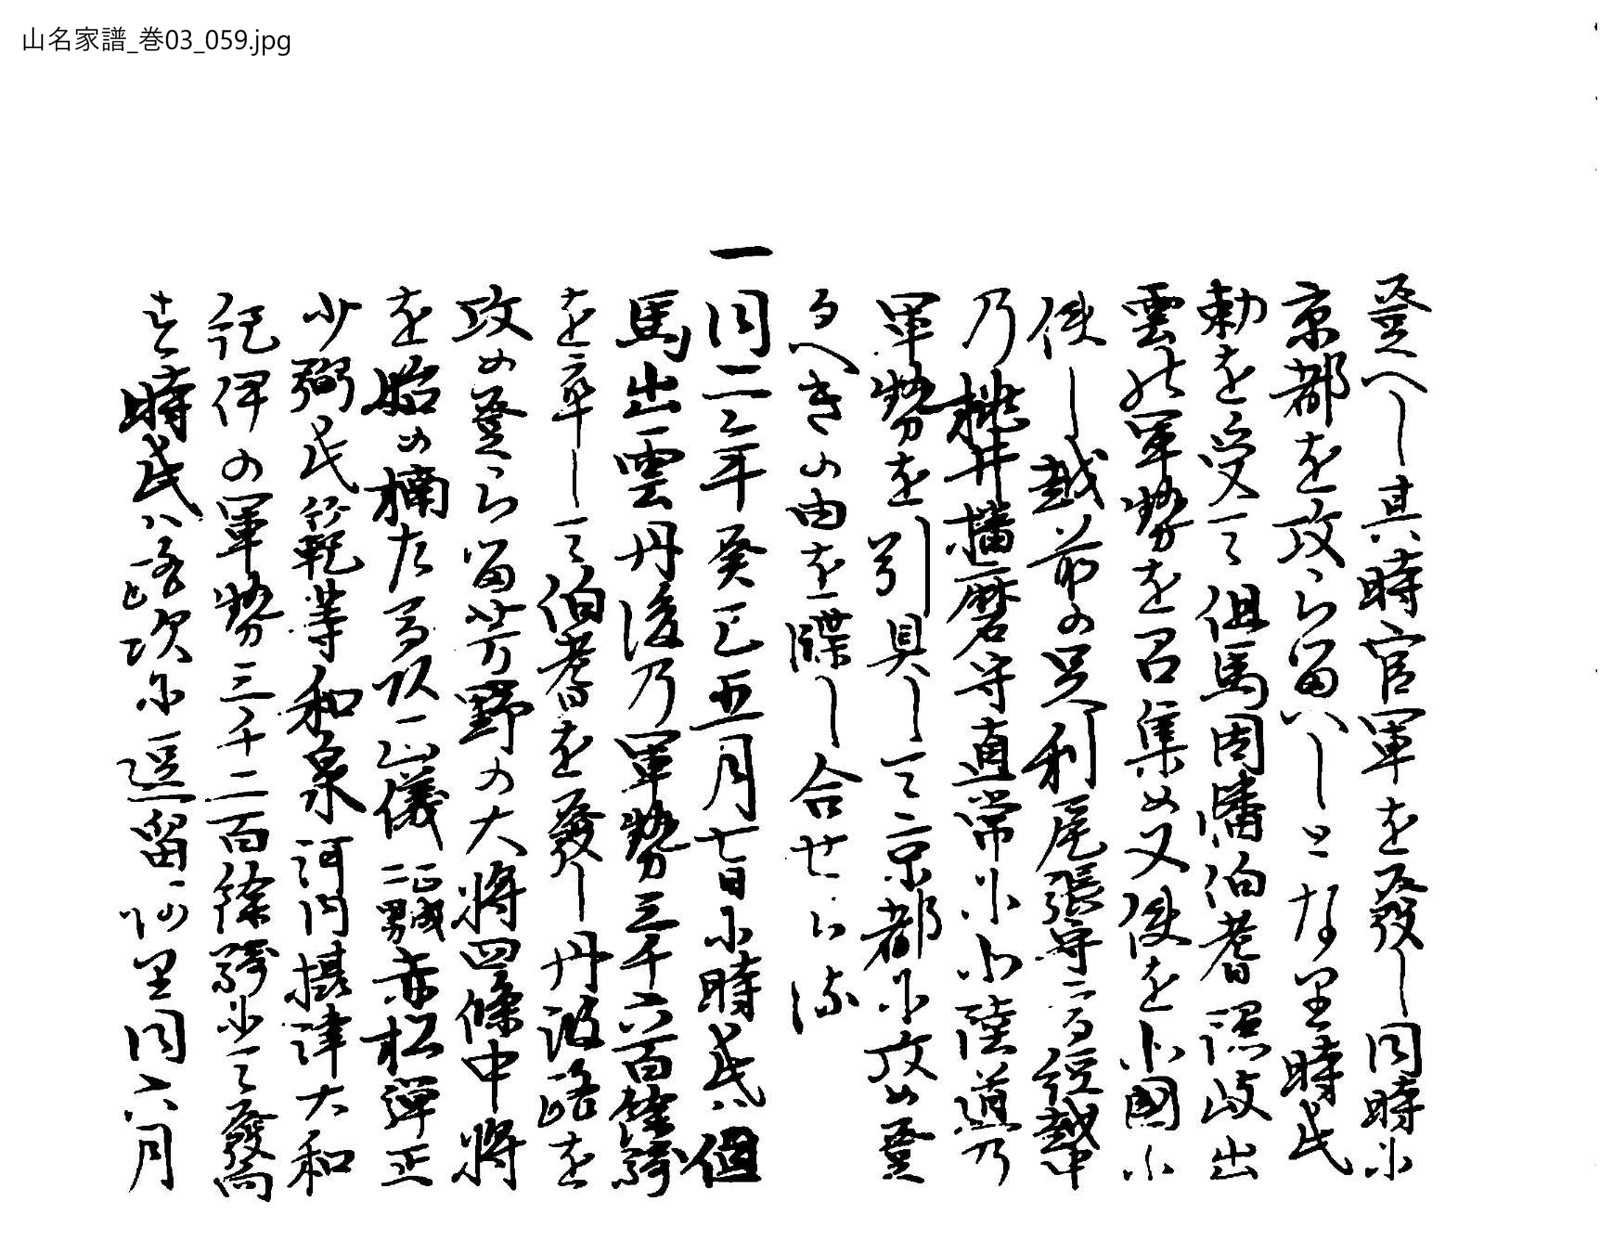 山名家譜_巻03_059.jpg
登へし其時官軍を發し同時ニ
京都を攻らるへしとなり時氏
勅を受て但馬因幡伯耆隠岐出
雲の軍勢を召集め又使を北國ニ
使し越前の足利尾張守高経越中
乃桃井播磨守直常ニ北陸道乃
軍勢を引具して京都ニ攻め登
るへきの由を牒し合せける
一同二年癸巳五月七日ニ時氏ハ但
馬出雲丹後乃軍勢三千六百餘騎
を率して伯耆を發し丹波路を
攻め登らる芳野の大将四條中将
を始め楠左馬頭正儀正成二男赤松弾正
少弼氏範等和泉河内摂津大和
紀伊の軍勢三千二百餘騎ニて發向
す時氏ハ路次ニ逗留あり同六月